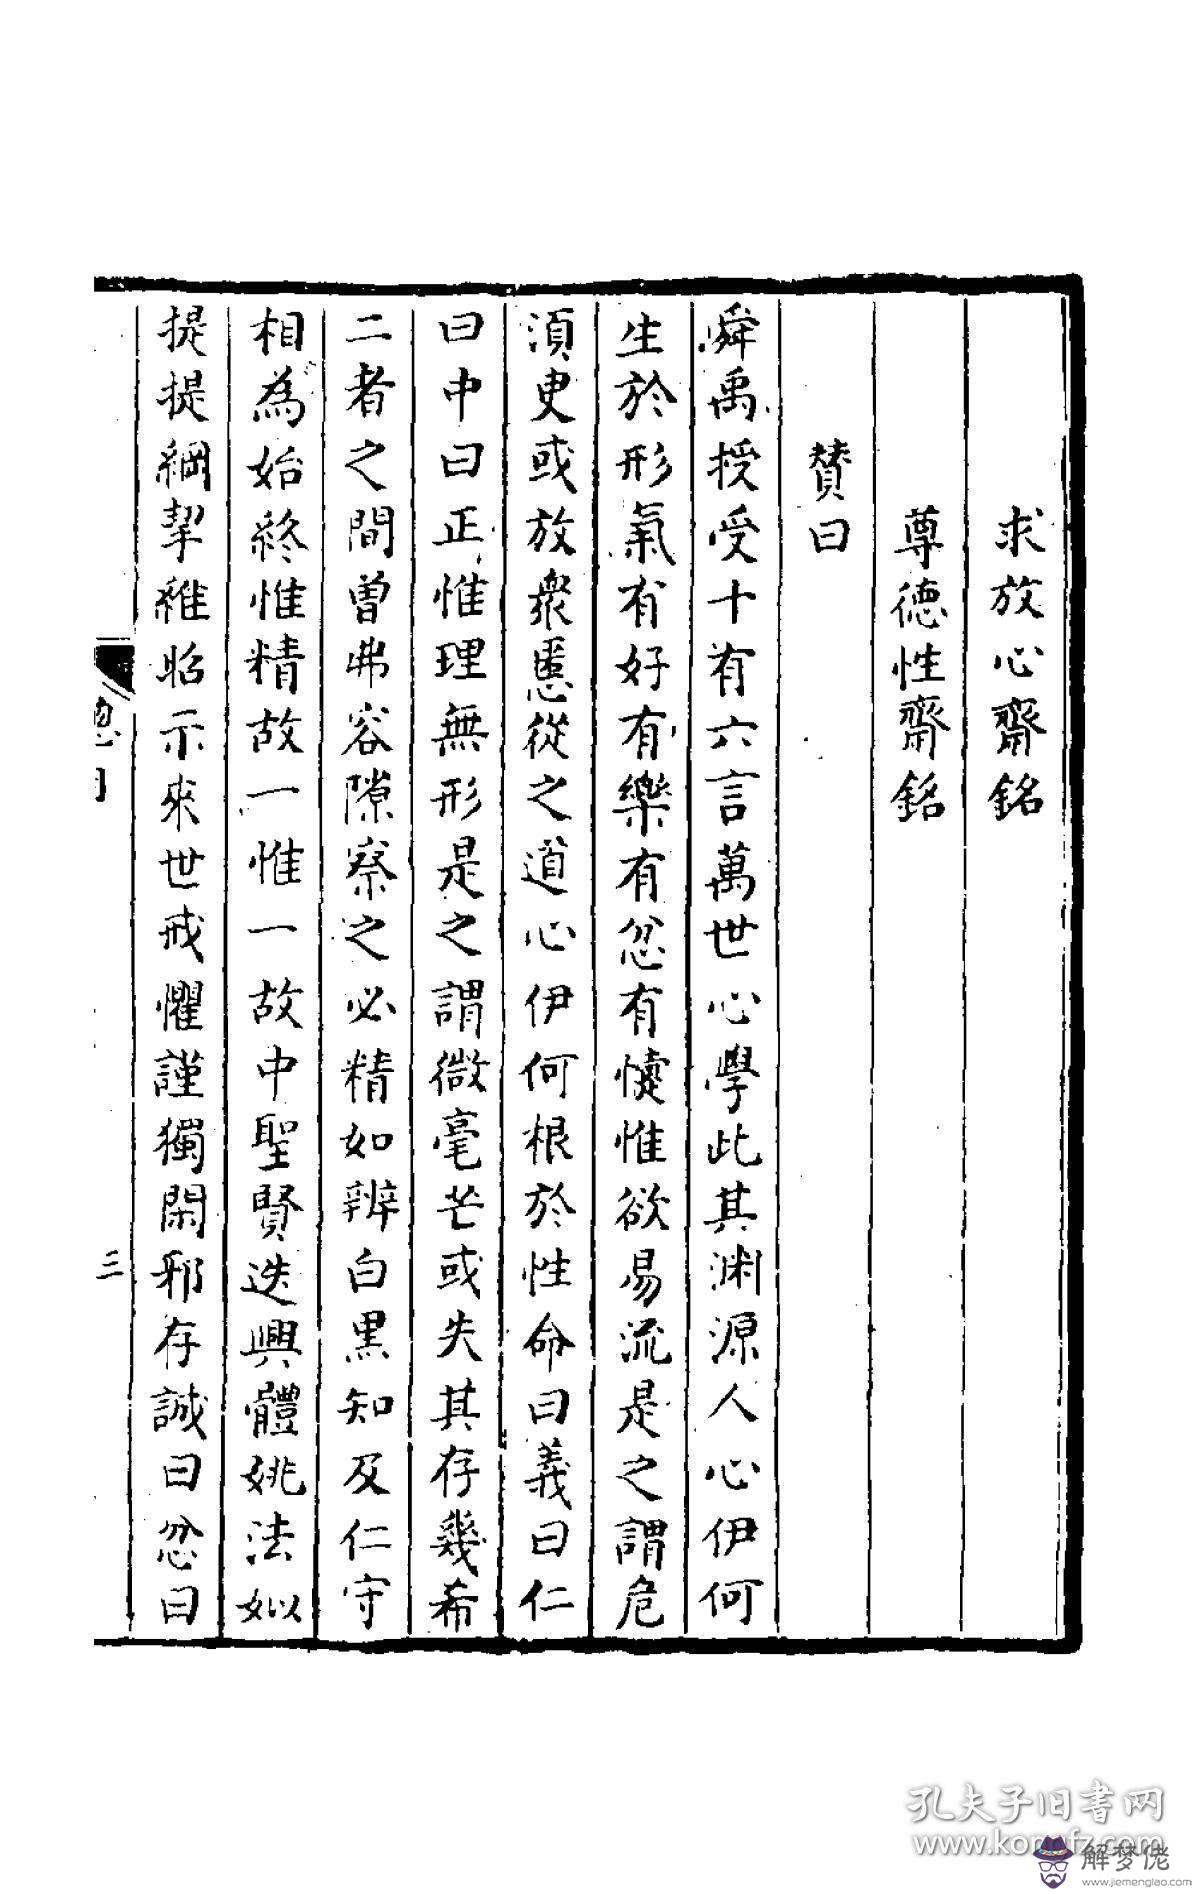 求放心齋銘
尊德性齋銘
贊曰
舜禹授受十有六言萬世心學此其淵源人心伊何
生於形氣有好有樂有忿有懥惟欲易流是之謂危
須臾或放衆慝從之道心伊何根於性命曰義曰仁
曰中曰正惟理無形是之謂微毫芒或失其存幾希
二者之間曾弗容隙察之必精如辨白黑知及仁守
相為始終惟精故一惟一故中聖賢迭興體姚法姒
提提綱挈維昭示來世戒懼謹獨閑邪存誠曰忿曰
總目
三
孔夫子旧书网
www.kongfz.com
解梦佬
www.jiemenglao.com